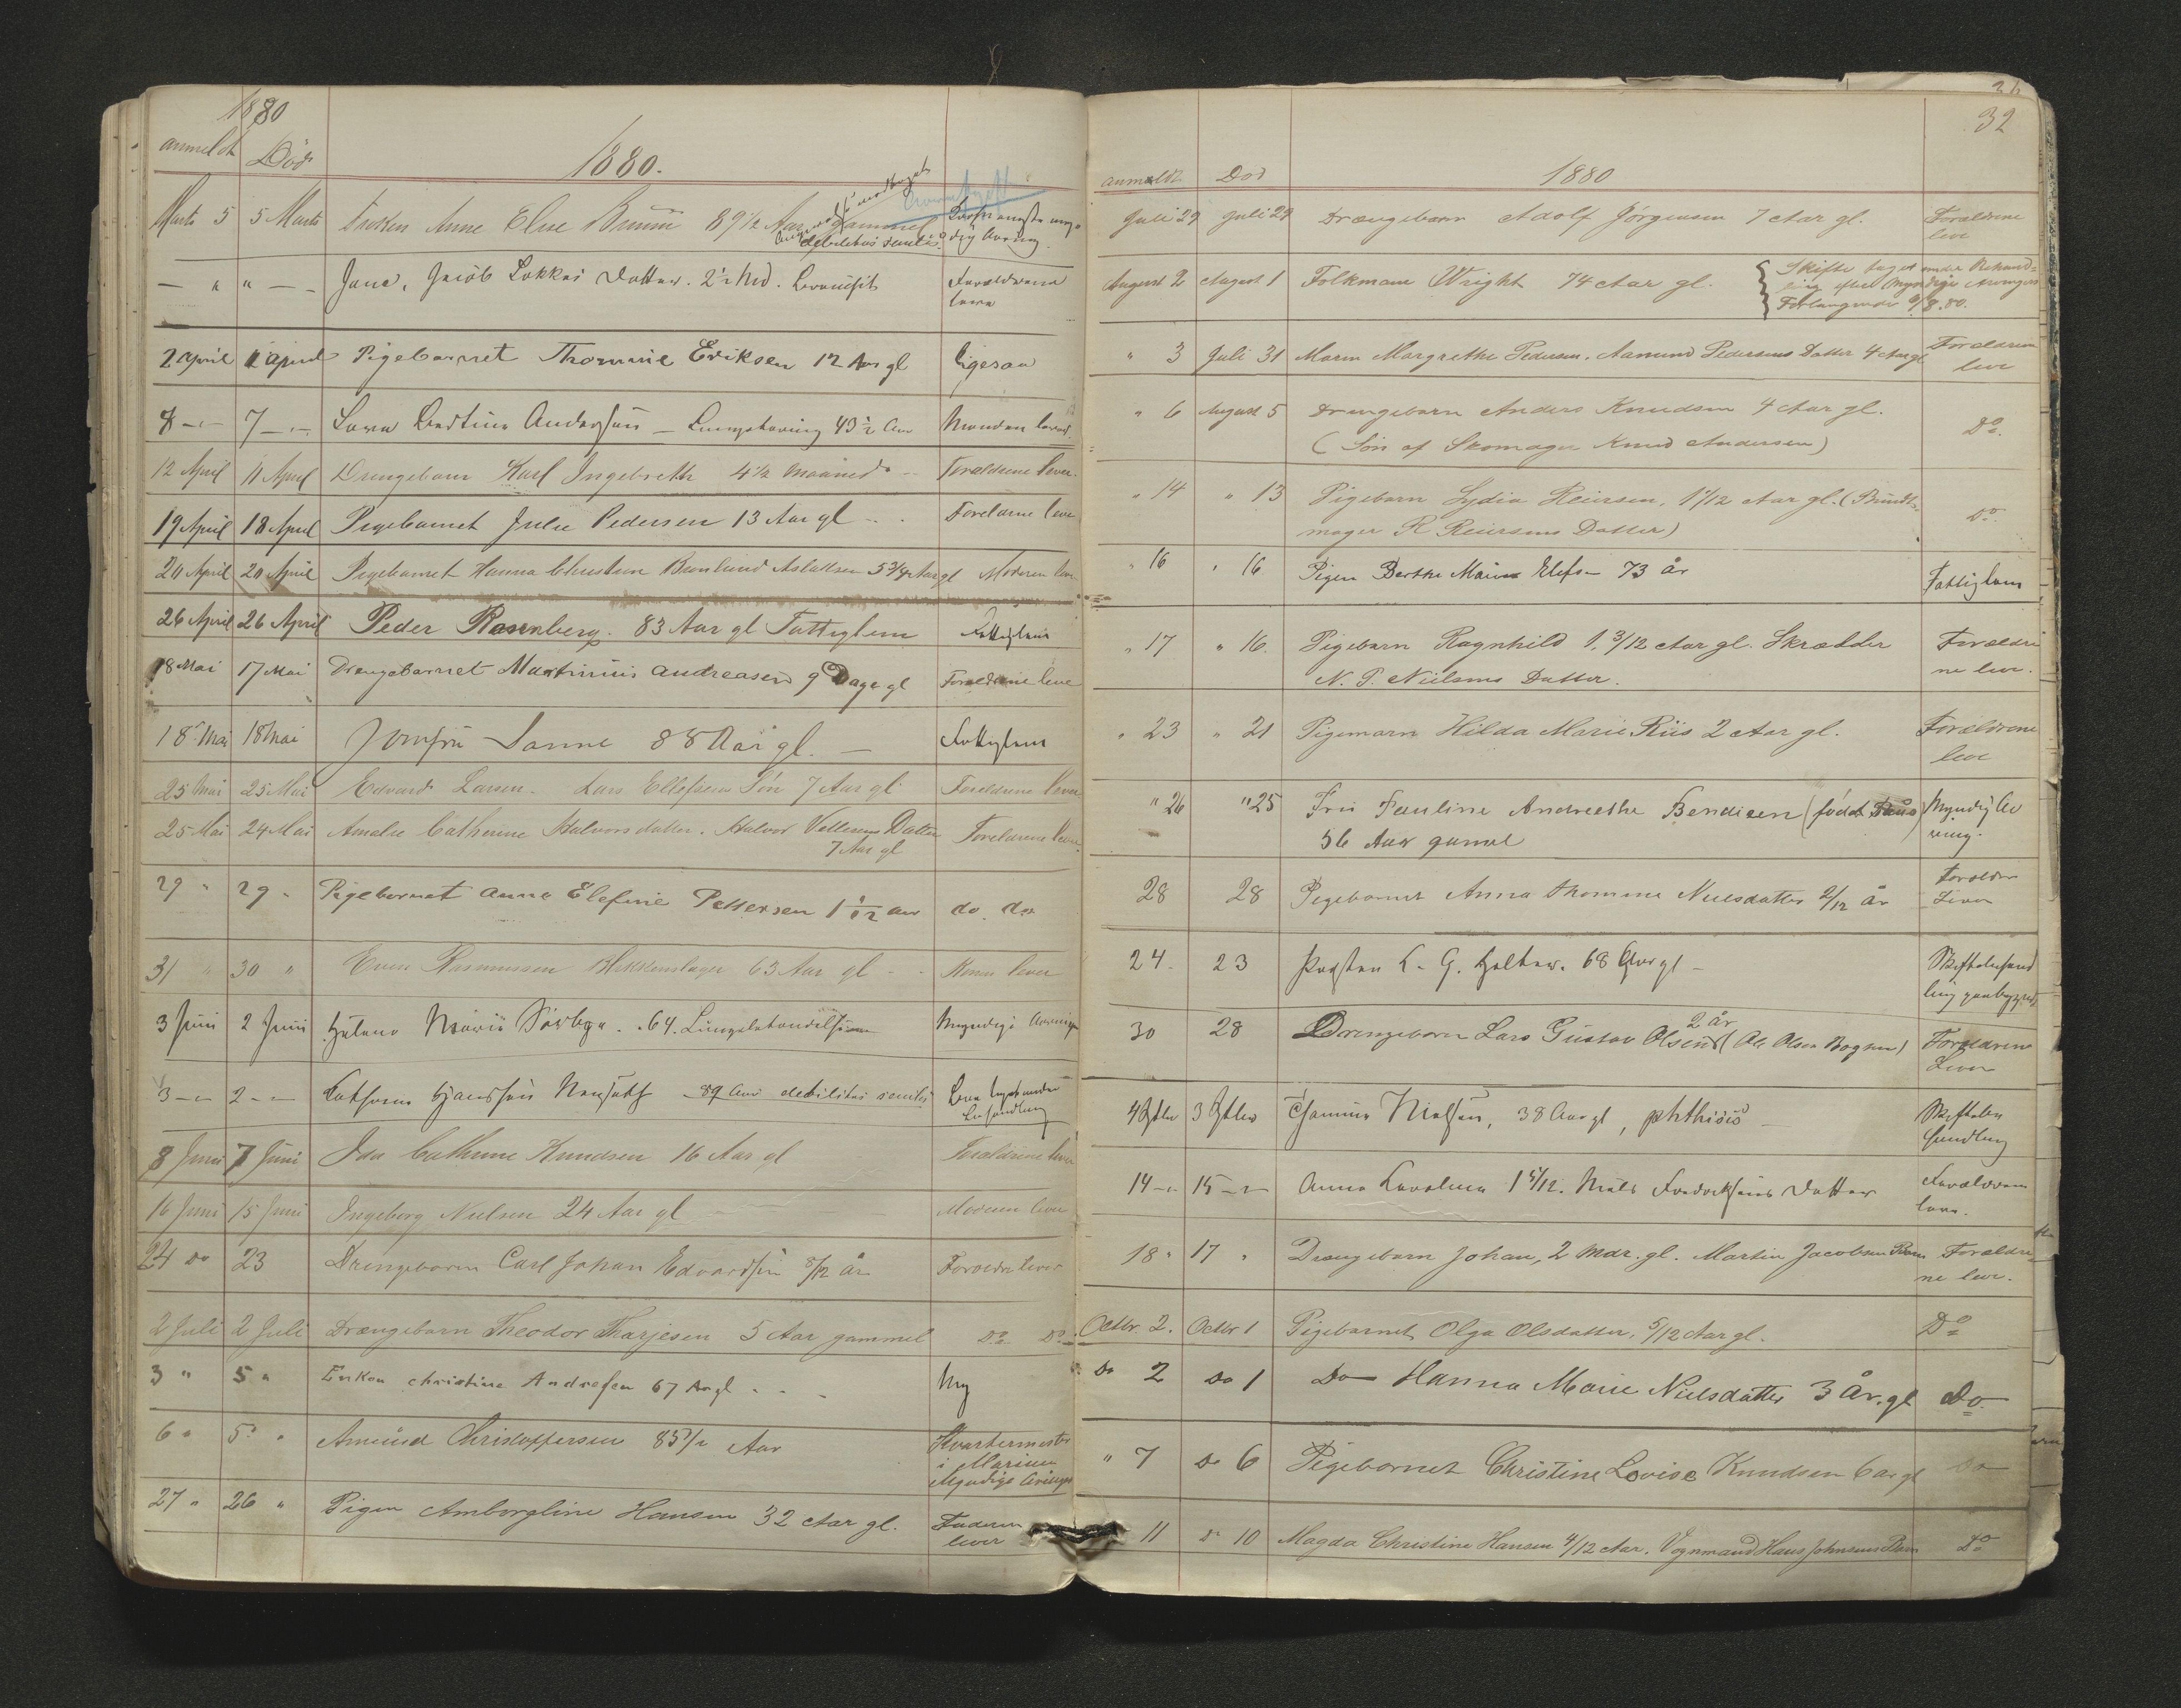 1880
anmeldt Død 1880.
Marts 5 5 Marts Frøken Anne Elise 89 1/2 Aar gammel
debilitas senilis
— " " — Jana, Jacob Lokkes Datter. 2 1/2 Md. Bronchit Forældrene
leve
2 April 1 April Pigebarnet Thomine Eriksen 12 Aar gl ligesaa
8 — 7 — Andersen — Lungebetændelse 43 1/2 Aar Manden lever
12 April 11 April Drengebarn Karl Ingebreth 4 1/2 Maaned Forældrene lever
19 April 18 April Pigebarnet Julie Pedersen 13 Aar gl Forældrene leve
20 April 20 April Pigebarnet Hanna Christine Aslaksen 5 3/4 Aar gl Moderen lever
26 April 26 April Peder Rosenberg. 83 Aar gl Fattiglem Fattiglem
18 Mai 17 Mai Drengebarnet Martinius Andreasen 9 Dage gl Forældrene leve
18 Mai 18 Mai Jomfru Sanne 88 Aar gl. — Fattiglem
25 Mai 25 Mai Edvard Larsen. Lars Ellefsens Søn 7 Aar gl Forældrene lever
25 Mai 24 Mai Amalie Cathrine Halvorsdatter. Halvor Datter Forældrene lever
7 Aar gl
29 " 29 " Pigebarnet Anna Elefine Pettersen 1 1/12 aar do. do
31 " 30 " Even Rasmussen Blikkenslager 63 Aar gl Konen lever
3 Juni 2 Juni Helene Marie . 64. Lungebetændelse Myndige Arvinger
3 — 2 — 89 Aar debilitas senilis
Behandling
8 Juni 7 Juni Ida Cathrine Knudsen 16 Aar gl Forældrene lever
16 Juni 15 Juni Ingeborg Nielsen 24 Aar gl Moderen lever
24 do 23 Drengebarn Carl Johan Edvardsen 8/12 år Forældre lever
2 Juli 2 Juli Drængebarn Theodor Tharjesen 5 Aar gammel Do. Do.
3 " 5 " Enken christine Andresen 67 Ar gl My
6 " 5 " Amund Christoffersen 85 1/2 Aar Kvartermester
i Marinen
Myndige Arvinger
27 " 26 " Pigen Amborgline Hansen 32 Aar gl. Faderen
lever
32
anmeldt Død 1880
Juli 29 Juli 29 Drængebarn Adolf Jörgensen 7 Aar gl. Forældrene
leve
August 2 August 1 Folkman Wright 74 Aar gl. { Skifte taget under Behand-
ling efter Myndige Arvingers
Forlangende 9/8.80.
" 3 Juli 31 Maren Margrethe Pedersen. Aamund Pedersens Datter 4 Aar gl Forældrene
leve
" 6 August 5 Drengebarn Anders Knudsen 4 Aar gl.
(Sön af Skomager Knud Andersen) Do.
" 14 " 13 Pigebarn Lydia Reiersen, 1 1/12 Aar gl. (Bundt-
mager R Reiersens Datter) Do.
" 16 " 16 Pigen Berthe Marie Elefsen 73 år Fattiglem
" 17 " 16. Pigebarn Ragnhild 1. 3/12 Aar gl. Skrædder Forældre
N. P. Nielsens Datter. ne leve.
" 23 " 21 Pigemarn Hilda Marie Riis 2 Aar gl. Forældrene
leve
" 26 " 25 Fru Pauline Andreethe Bendixen (födt ) Myndig Ar
56 Aar gamel ving.
28 28 Pigebarnet Anna Thomine Nielsdatter 2/12 år Forældre
Lever
24. 23 L. G. Holter. 68 Aar gl — Skiftebehand
ling paabegyndt
30 28 Drengebarn Lars Gustav Olsen 2 år (Ole Olsen Bogsen) Forældrene
Lever
4 Sptbr 3 Sptbr Nielsen, 38 Aar gl, phthisis — Skiftebe
handling
14 — 15 — Anna 1 5/12. Niels Fredriksens Datter Forældrene
leve.
18 " 17 " Drængebarn Johan, 2 Mdr. gl. Martin Jacobsens Barn Forældre
ne leve.
Octbr. 2. Octbr 1 Pigebarnet Olga Olsdatter, 5/12 Aar gl. Do
Do 2 Do 1 Do Hanna Marie Nielsdatter 3 År. gl Do.
" 7 Do 6 Pigebarnet Christine Lovise Knudsen 6 ar gl Do
11 Do 10 Magda Christine Hansen 4/12 Aar. Vognmand Hans Johnsens Barn Do